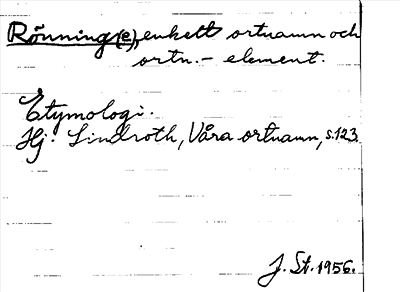 Rönning(e), enkelt ortnamn och
ortn. - element.
Etymologi.
Hj. Lindroth, Våra ortnamn, s. 123
J. St. 1956.